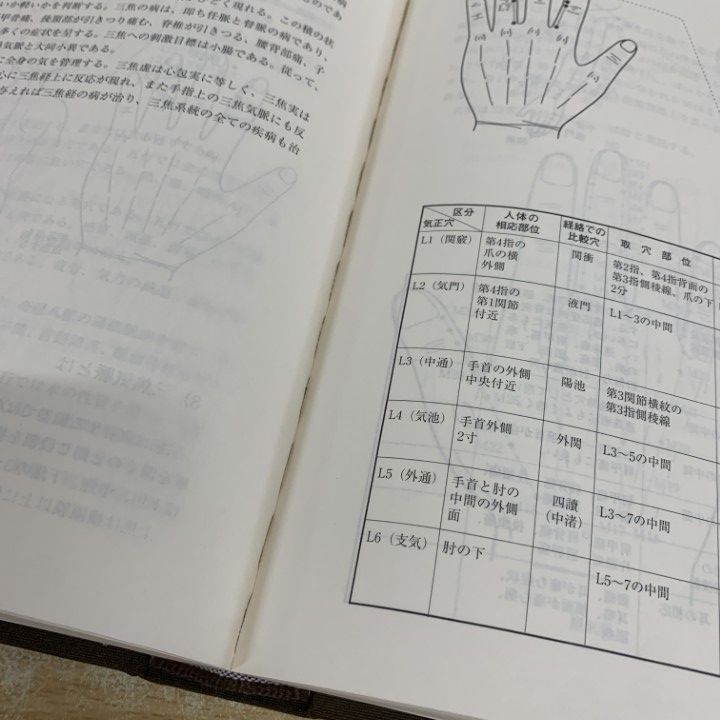 いか軽いかを判断する。三焦の病は、即ち任脈と督脈の病であり、
甲骨痛、後頭部が引きつり痛む、脊椎が引きつる、腰背部痛、子
多くの症状を呈する。三焦への刺激目標は小腸である。従って、
気脈と大同小異である。
に全身の気を管理する。三焦虚は心包実に等しく、三焦実は
心に三焦経上に反応が現れ、また手指上の三焦気脈にも反
与えれば三焦経の病が治り、三焦系統の全ての疾病も治
区分
気正穴
人体の
相応部位
経絡での
比較穴
取穴部位
L1(関竅)
第4指の
爪の横
外側
関衝
第2指、第4指背面の
第3指側稜線、爪の下
2分
L2(気門)
第4指の
第1関節
付近
液門
L1〜3の中間
L3(中通)
手首の外側
中央付近
陽池
第3関節横紋の
第3指側稜線
L4(気池)
手首外側
2寸
外関
L3〜5の中間
L5(外通)
手首と肘の
中間の外側
面
四讀
(中渚)
L3〜7の中間
L6(支気)
肘の下
L5〜7の中間